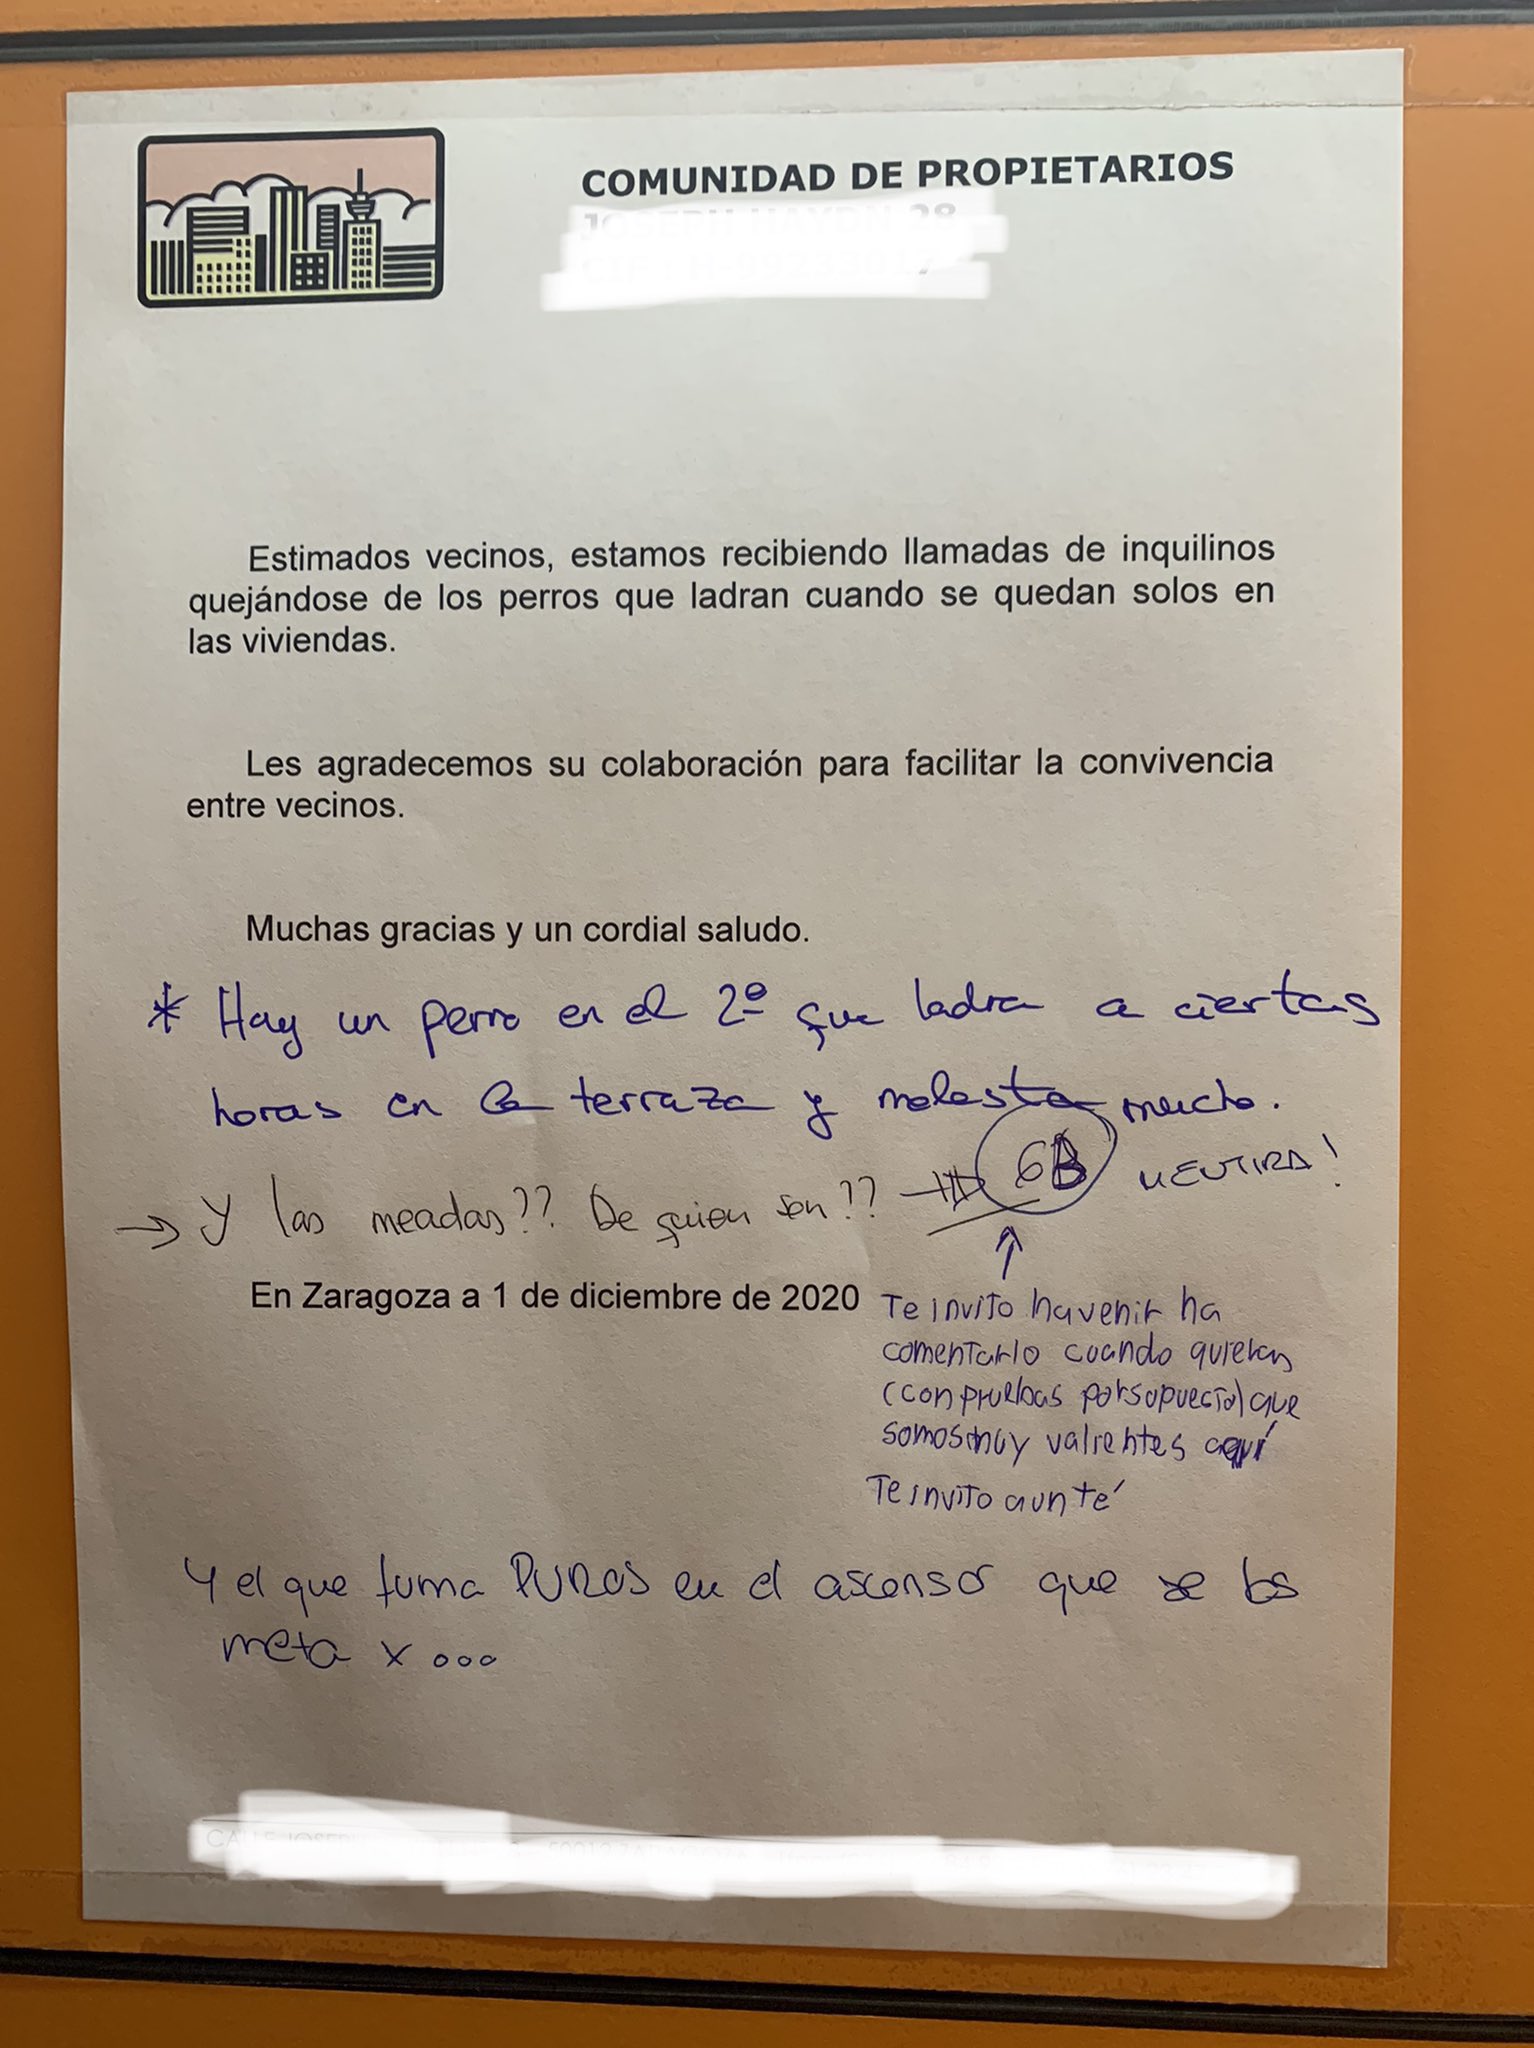 COMUNIDAD DE PROPIETARIOS
Estimados vecinos, estamos recibiendo llamadas de inquilinos
quejándose de los perros que ladran cuando se quedan solos en
las viviendas.
Les agradecemos su colaboración para facilitar la convivencia
entre vecinos.
Muchas gracias y un cordial saludo.
* Hay un perro en el 2º que ladra a ciertas
horas en la terraza y molesta mucho.
→ Y las meadas?? De quien son?? → 6B MENTIRA!
En Zaragoza a 1 de diciembre de 2020
Te invito ha venir ha
comentarlo cuando quieras
(con pruebas por supuesto) que
somos muy valientes aquí
Te invito a un té
Y el que fuma PUROS en el ascensor que se los
meta x ...